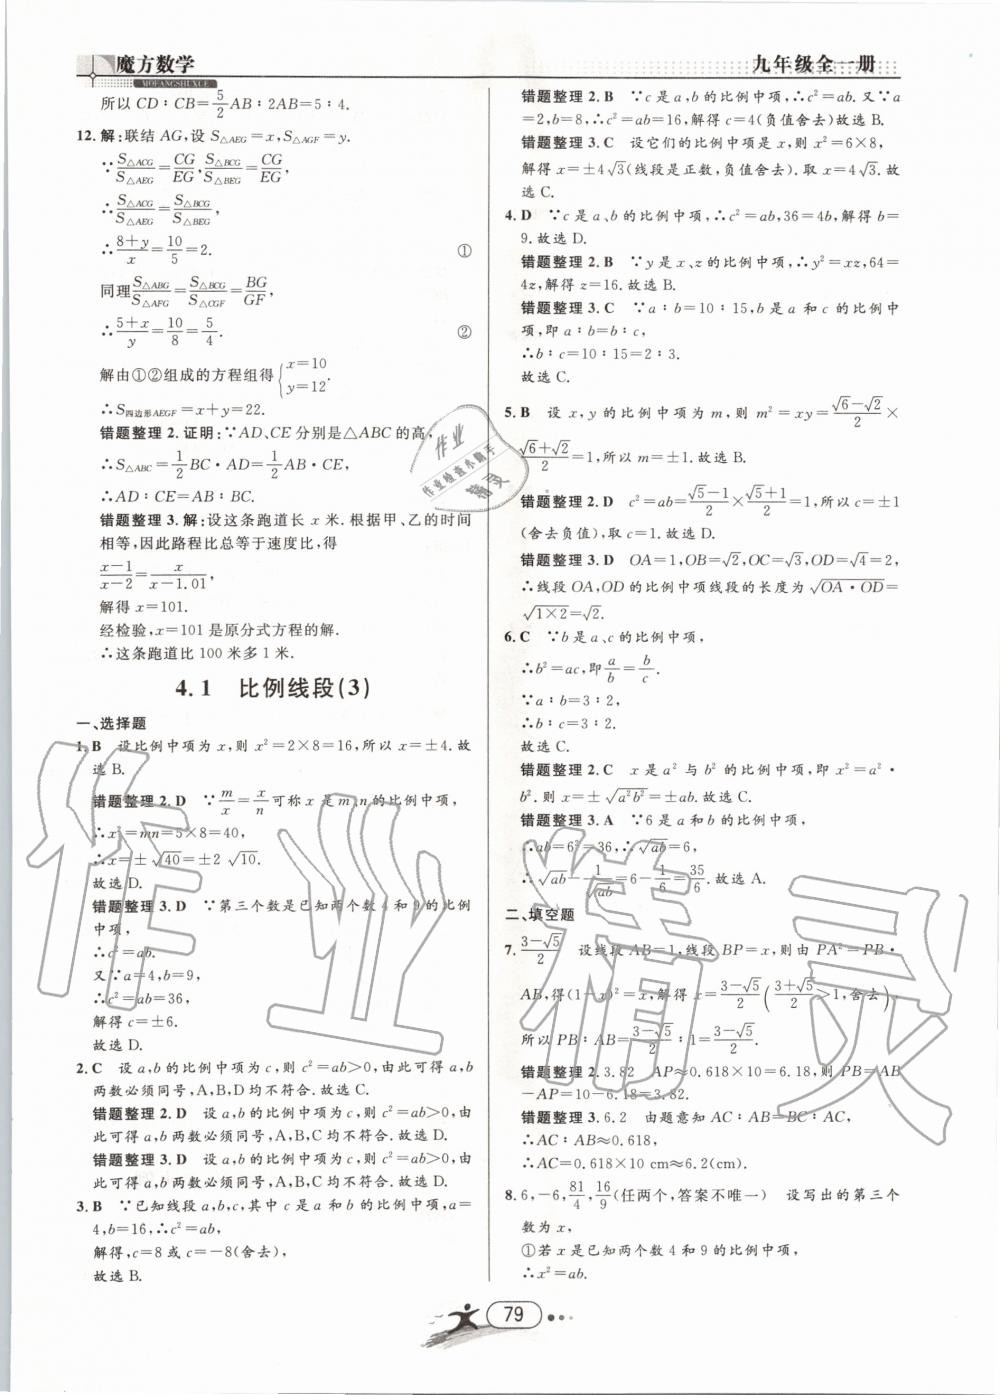 魔方数学
MOFANGSHUXUE
九年级全一册
所以 CD∶CB=5/2AB∶2AB=5∶4.
12. 解:联结 AG,设 S△AEG=x,S△AGF=y.
∵S△ACG/S△AEG=CG/EG,S△BCG/S△BEG=CG/EG,
∴S△ACG/S△AEG=S△BCG/S△BEG,
∴(8+y)/x=10/5=2. ①
同理S△ABG/S△AFG=S△BCG/S△CGF=BG/GF,
∴(5+x)/y=10/8=5/4. ②
解由①②组成的方程组得{x=10 y=12.
∴S四边形AEGF=x+y=22.
错题整理 2. 证明:∵AD、CE 分别是△ABC 的高,
∴S△ABC=1/2BC·AD=1/2AB·CE,
∴AD∶CE=AB∶BC.
错题整理 3. 解:设这条跑道长 x 米.根据甲、乙的时间
相等,因此路程比总等于速度比,得
(x-1)/(x-2)=x/(x-1.01),
解得 x=101.
经检验,x=101 是原分式方程的解.
∴这条跑道比 100 米多 1 米.
4.1 比例线段(3)
一、选择题
1. B 设比例中项为 x,则 x²=2×8=16,所以 x=±4.故
选 B.
错题整理 2. D ∵m/x=x/n可称 x 是 m,n的比例中项,
∴x²=mn=5×8=40,
∴x=±√40=±2√10.
故选 D.
错题整理 3. D ∵第三个数是已知两个数 4 和 9 的比例
中项,
∴c²=ab.
又∵a=4,b=9,
∴c²=ab=36,
解得 c=±6.
故选 D.
2. C 设 a,b 的比例中项为 c,则 c²=ab>0,由此可得 a,b
两数必须同号,A、B、D 均不符合.故选 C.
错题整理 2. D 设 a,b 的比例中项为 c,则 c²=ab>0,由
此可得 a,b 两数必须同号,A、B、C 均不符合.故选 D.
错题整理 3. D 设 a,b 的比例中项为 c,则 c²=ab>0,由
此可得 a,b 两数必须同号,A、B、C 均不符合.故选 D.
3. B ∵已知线段 a,b,c,其中 c 是 a 和 b 的比例中项,a=
4,b=16,∴c²=ab,
解得,c=8 或 c=-8(舍去),
故选 B.
错题整理 2. B ∵c 是 a,b 的比例中项,∴c²=ab.又∵a
=2,b=8,∴c²=ab=16,解得 c=4(负值舍去)故选 B.
错题整理 3. C 设它们的比例中项是 x,则 x²=6×8,
解得 x=±4√3(线段是正数,负值舍去).取 x=4√3.故
选 C.
4. D ∵c 是 a、b 的比例中项,∴c²=ab,36=4b,解得 b=
9.故选 D.
错题整理 2. B ∵y 是 x、z 的比例中项,∴y²=xz,64=
4z,解得 z=16.故选 B.
错题整理 3. C ∵a∶b=10∶15,b 是 a 和 c 的比例中
项,即 a∶b=b∶c,
∴b∶c=10∶15=2∶3.
故选 C.
5. B 设 x,y 的比例中项为 m,则 m²=xy=(√6-√2)/2×
(√6+√2)/2=1,所以 m=±1.故选 B.
错题整理 2. D c²=ab=(√5-1)/2×(√5+1)/2=1,所以 c=±1
(舍去负值),取 c=1.故选 D.
错题整理 3. D OA=1,OB=√2,OC=√3,OD=√4=2,
∴线段 OA,OD 的比例中项线段的长度为√(OA·OD)=
√(1×2)=√2.
6. C ∵b 是 a、c 的比例中项,
∴b²=ac,即a/b=b/c.
∵a∶b=3∶2,
∴b∶c=3∶2.
故选 C.
错题整理 2. C x 是 a² 与 b² 的比例中项,即 x²=a²·
b².则 x=±√(a²b²)=±ab.故选 C.
错题整理 3. A ∵6 是 a 和 b 的比例中项,
∴ab=6²=36,∴√ab=6,
∴√ab-1/√ab=6-1/6=35/6.故选 A.
二、填空题
7. (3-√5)/2 设线段 AB=1,线段 BP=x,则由 PA²=PB·
AB,得(1-x)²=x,解得 x=(3-√5)/2((3+√5)/2>1,舍去)
所以 PB∶AB=(3-√5)/2∶1=(3-√5)/2.
错题整理 2. 3.82 AP≈0.618×10=6.18,则 PB=AB
-AP=10-6.18=3.82.
错题整理 3. 6.2 由题意知 AC∶AB=BC∶AC,
∴AC∶AB≈0.618,
∴AC=0.618×10 cm≈6.2(cm).
8. 6,-6,81/4,16/9(任两个,答案不唯一) 设写出的第三个
数为 x,
①若 x 是已知两个数 4 和 9 的比例中项,
∴x²=ab.
79
作业
作业检查小助手
精灵
作业精灵